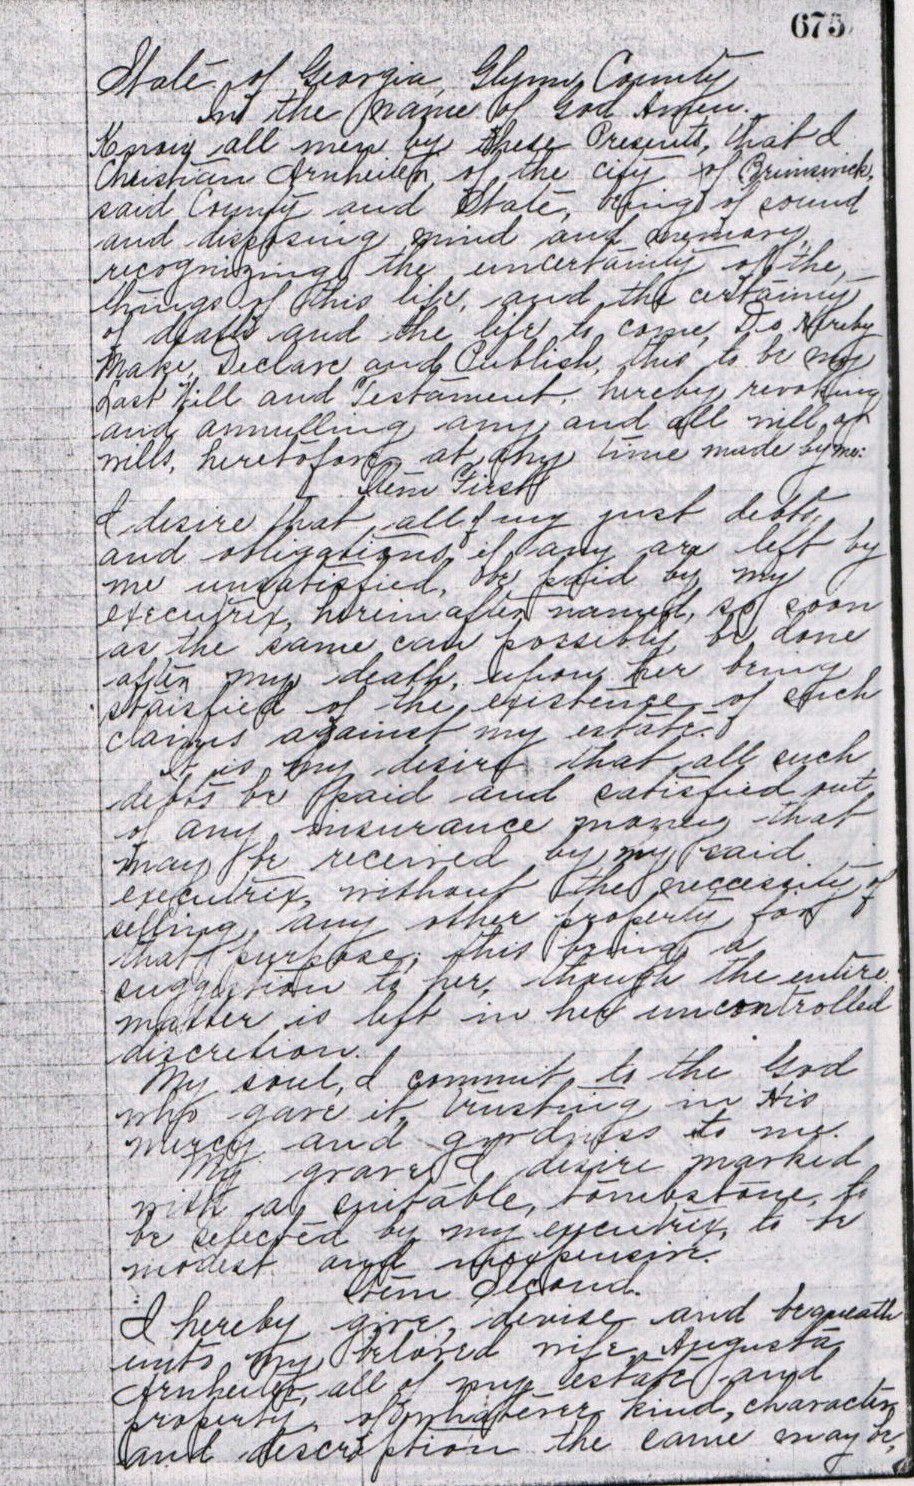 675
State of Georgia, Glynn County
In the name of God Amen.
Know all men by these Presents, that I
Christian Arnheiter, of the city of Brunswick,
said County and State, being of sound
and disposing mind and memory,
recognizing the uncertainty of the
things of this life, and the certainty
of death and the life to come, Do Hereby
Make, Declare and Publish, this to be my
Last Will and Testament, hereby revoking
and annulling any and all will or
wills, heretofore at any time made by me:
Item First
I desire that all of my just debts
and obligations, if any are left by
me unsatisfied, be paid by my
executrix, hereinafter named, so soon
as the same can possibly be done
after my death, upon her being
staisfied of the existence of such
claims against my estate.
It is my desire that all such
debts be paid and satisfied out
of any insurance money that
may be received by my said
executrix, without the neccessity of
selling any other property for
that purpose; this being a
suggestion to her, though the entire
matter is left in her uncontrolled
discretion.
My soul, I commit to the God
who gave it, trusting in His
mercy and goodness to me.
My grave I desire marked
with a suitable, tombstone, to
be selected by my executrix, to be
modest and inexpensive.
Item Second.
I hereby give, devise and bequeath
unto my beloved wife, Augusta
Arnheiter, all of my estate and
property, of whatever kind, character
and description the same may be,